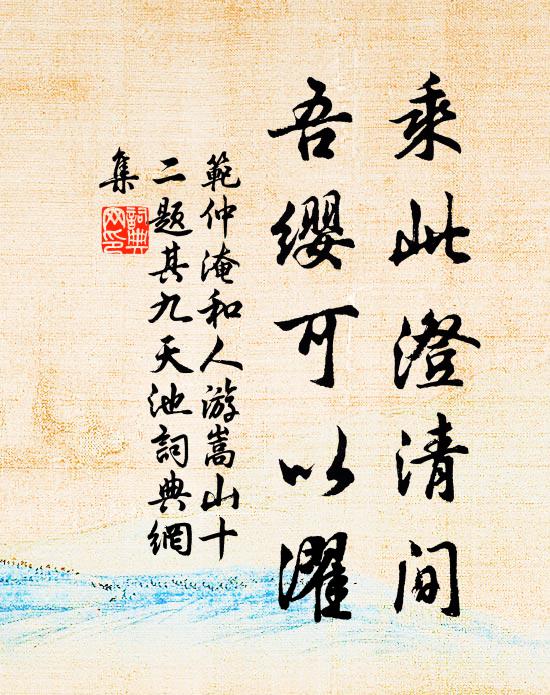 乘此澄清间
吾缨可以濯
範仲淹和人游嵩山十
二题其九天池詞典網
集
詞典网印